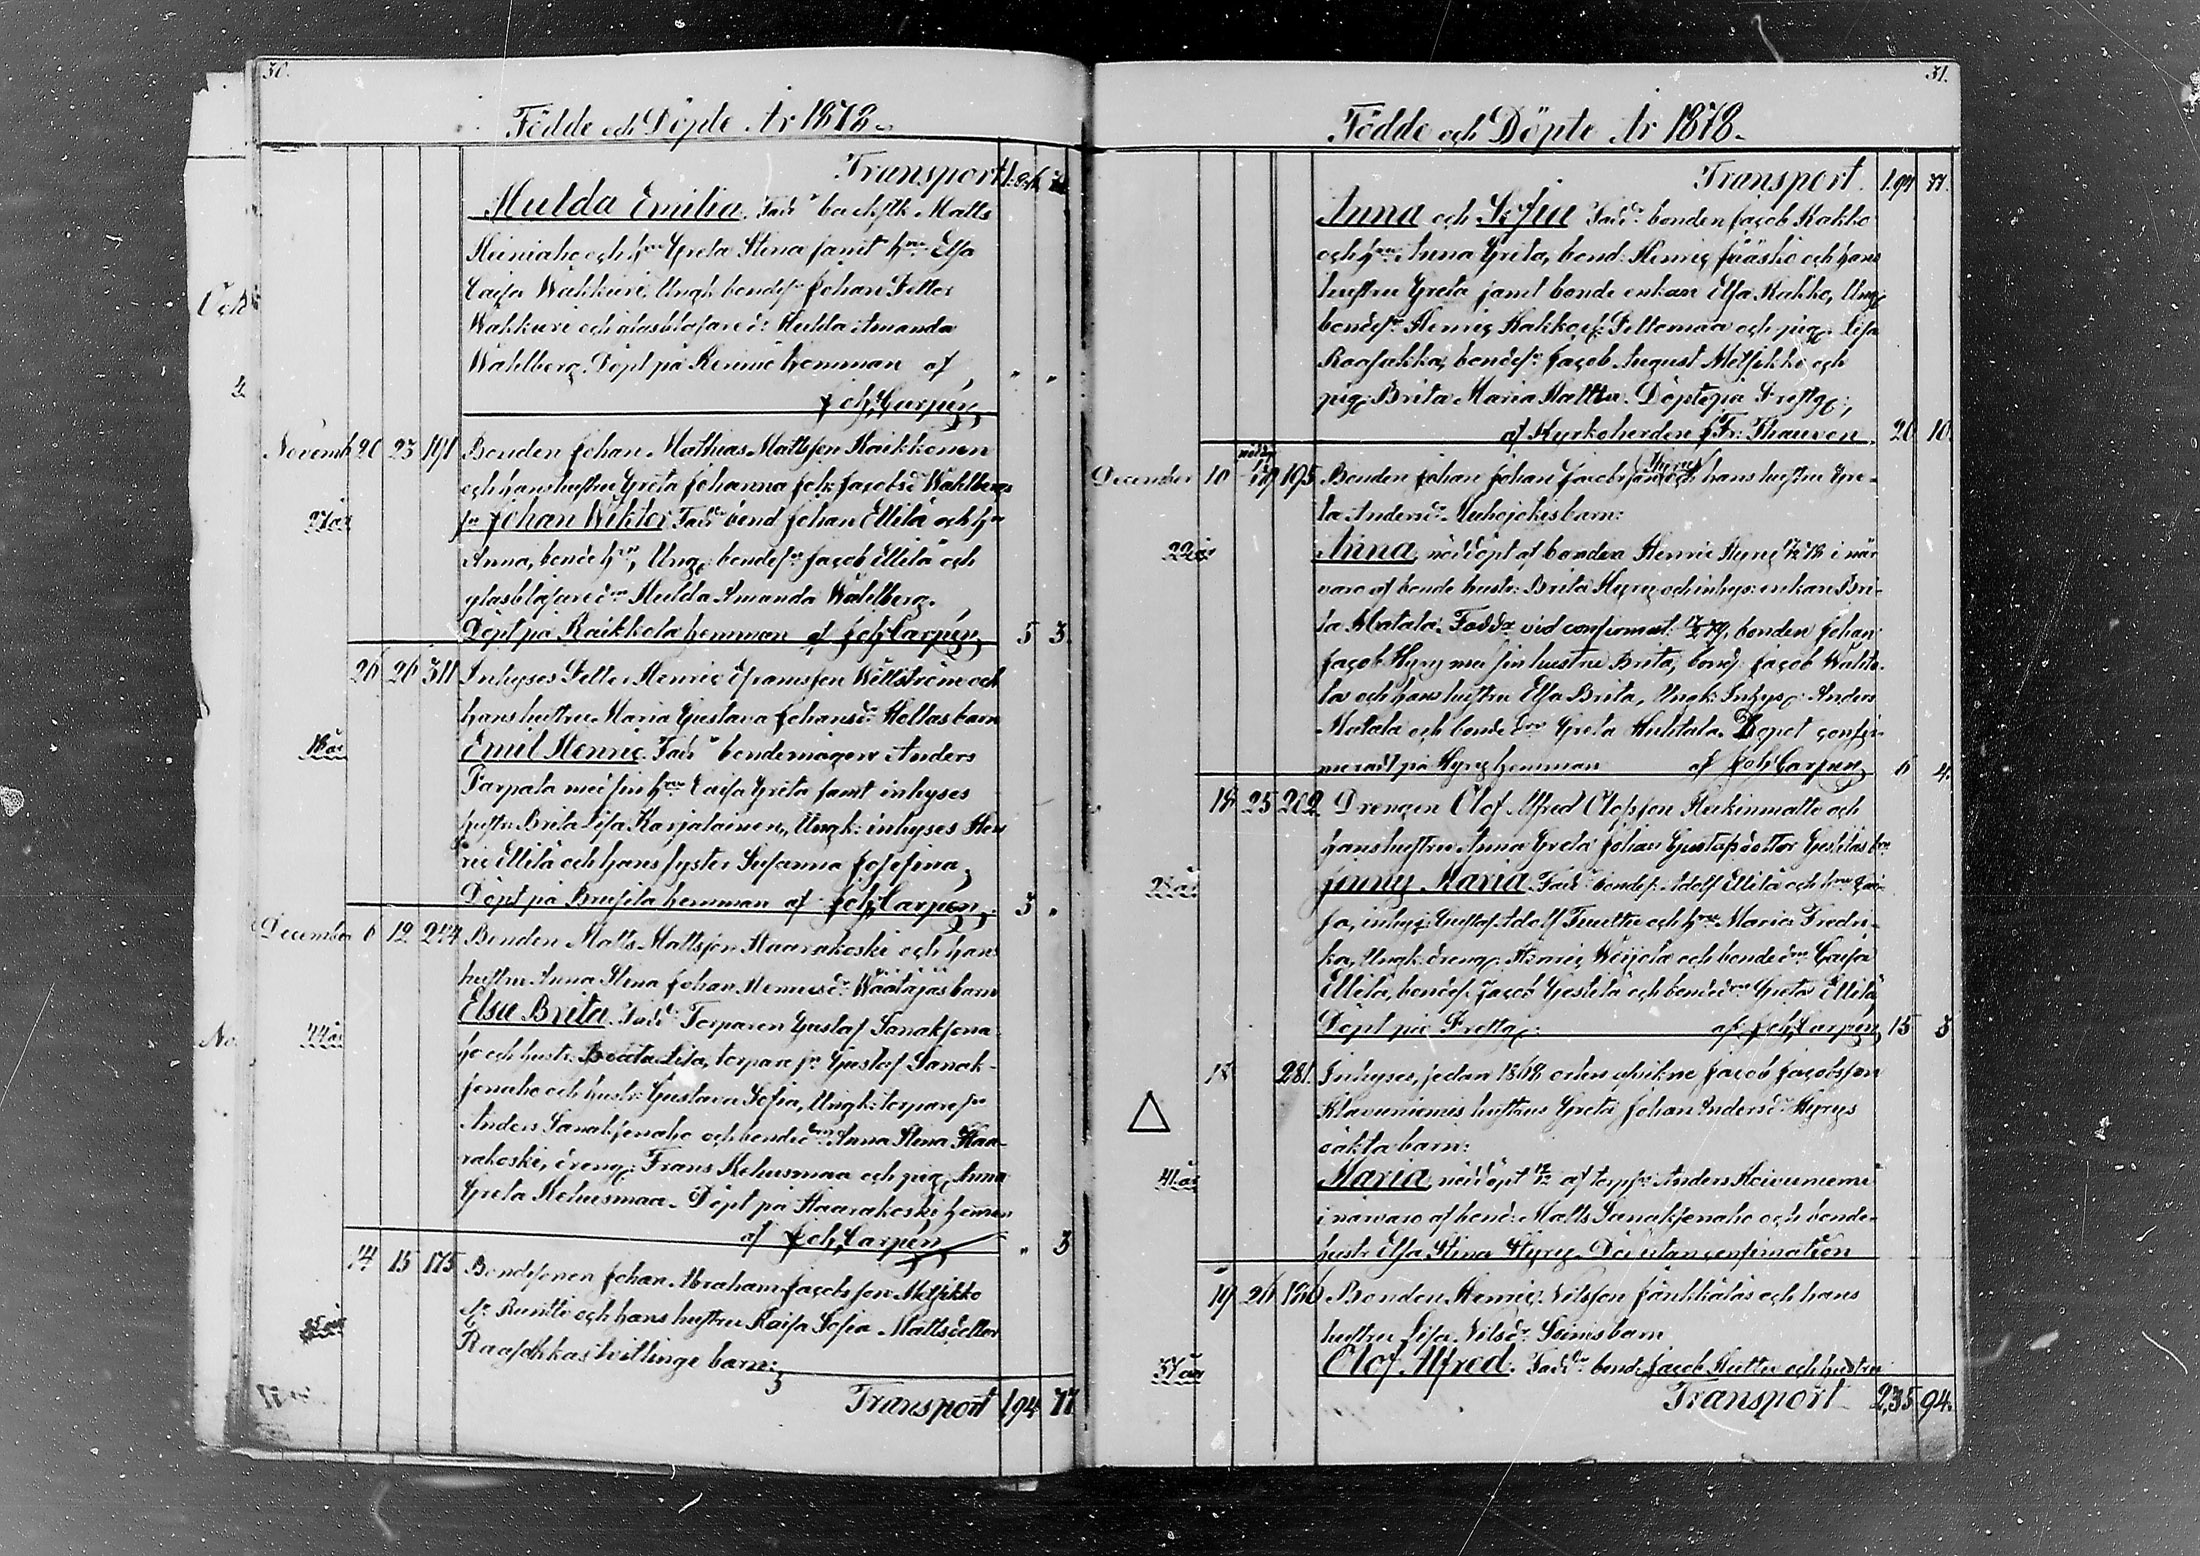 30.
Födde och Döpte År 1878.
Transport
Hulda Emilia. Fadd. backstk Matts
och hru Greta Stina samt hru Elsa
Caisa Wahkuri. Ungk. bondes. Johan Petter
Wahkuri och glasblasare d: Hulda Amanda
Wahlberg. Döpt på hemman af
Joh. Carpén
Novemb 20 23 191 Bonden Johan Mathias Mattsson Raikkonen
och hans hustru Greta Johanna Joh: Jacobsd Wahlbergs
Johan Wiktor. Fadd. bond Johan Ellilä och hru
27 år
Anna, bonde Ung. bondes. Jacob Ellilä och
glasblasare d. Hulda Amanda Wahlberg.
Döpt på Raikkola hemman af Joh Carpén 5 3.
26 26 311 Inhyses Petter Henric Efraimsson Wettström och
hans hustru Maria Gustava Johansd: barn
18 år
Emil Henric. Fadd. bondemågen Anders
Parpala med sin hru Caisa Greta samt inhyses
hustr. Brita Lisa Karjalainen, Ungk: inhyses Hen
ric Ellilä och hans syster Susanna Josefina.
Döpt på hemman af Joh, Carpén, 3 "
December 6 12 244 Bonden Matts Mattsson Haarakoski och hans
hustru Anna Stina Johan Henricsd: Wäätäjäs barn
Elsa Brita. Fadd. Torparen Gustaf Sanaksena
44 år
ho och hustr. Beata Lisa, torpare s. Gustaf Sanak-
senaho och hustr: Gustava Sofia, Ungk: torpare s.
Anders Sanaksenaho och bonded. Anna Stina Haa-
rakoski, dreng: Frans Kehusmaa och pig, Anna
Greta Kehusmaa. Döpt på Haarakoski hemman
af Joh, Carpén " 3
14 15 175 Bondesonen Johan Abraham Jacobsson Metsikkö
och hans hustru Kaisa Sofia Mattsdotter
Raasakkas tvillinge barn:
Transport 1,94 77
31.
Födde och Döpte År 1878.
Transport. 1.94 77.
Anna och Sofia Fadd. bonden Jacob Kakko
och hru Anna Greta, bond: Henric Jääskö och hans
hustru Greta samt bonde enkan Elsa Kakko, Ung:
bondes. Henric Kakko Peltomaa och pig. Lisa
Raasakka, bondes. Jacob August Metsikkö och
pig: Brita Maria Döpte på Prestg:,
af Kyrkoherden Fr: Thauvon. 20 10.
December 10 195 Bonden Johan Johan Jacobsson Hyry och hans hustru Gre-
ta Andersd. Auhojokis barn:
22 år
Anna, nöddöpt af bonden Henric Hyry i när
varo af bonde hustr: Brita Hyry och inhys: enkan Bri-
ta Matala. Fadd. vid confirmat: bonden Johan
Jacob Hyry med sin hustru Brita, bond. Jacob
la och hans hustru Elsa Brita, Ungk: Inhys: Anders
Matala och bonde d. Greta Huhtala. Dopet confir-
meradt på Hyry hemman af Joh Carpén 6 4.
18 25 202 Drengen Olof Alfred Olofsson och
hans hustru Anna Greta Johan Gustafsdotter Gestiläs
28 år
Jenny Maria. Fadd. bondes. Adolf Ellilä och hru Cai-
sa, inhys: Gustaf Adolf och hru Maria Fredri-
ka, Ungk. dreng: Henric och bonde d. Caisa
Ellilä, bondes. Jacob Gestilä och bonded. Greta Ellilä
Döpt på Prestg: af Joh, Carpén 15 3
18 281. Inhyses, sedan 1868 orten afvikne Jacob Jacobsson
hustrus Greta Johan Andersd: Hyrys
oäkta barn:
41 år
Maria, nöddöpt af Anders Koivuniemi
i närvaro af bond: Matts Sanaksenaho och bonde-
hustr. Elsa Stina Hyry. Död utan confirmation
19 26 Bonden Henric Nilsson och hans
hustru Lisa Nilsd. barn
37 år
Olof Alfred. Fadd. bond. Jacob och hustru
Transport 2,35 94.